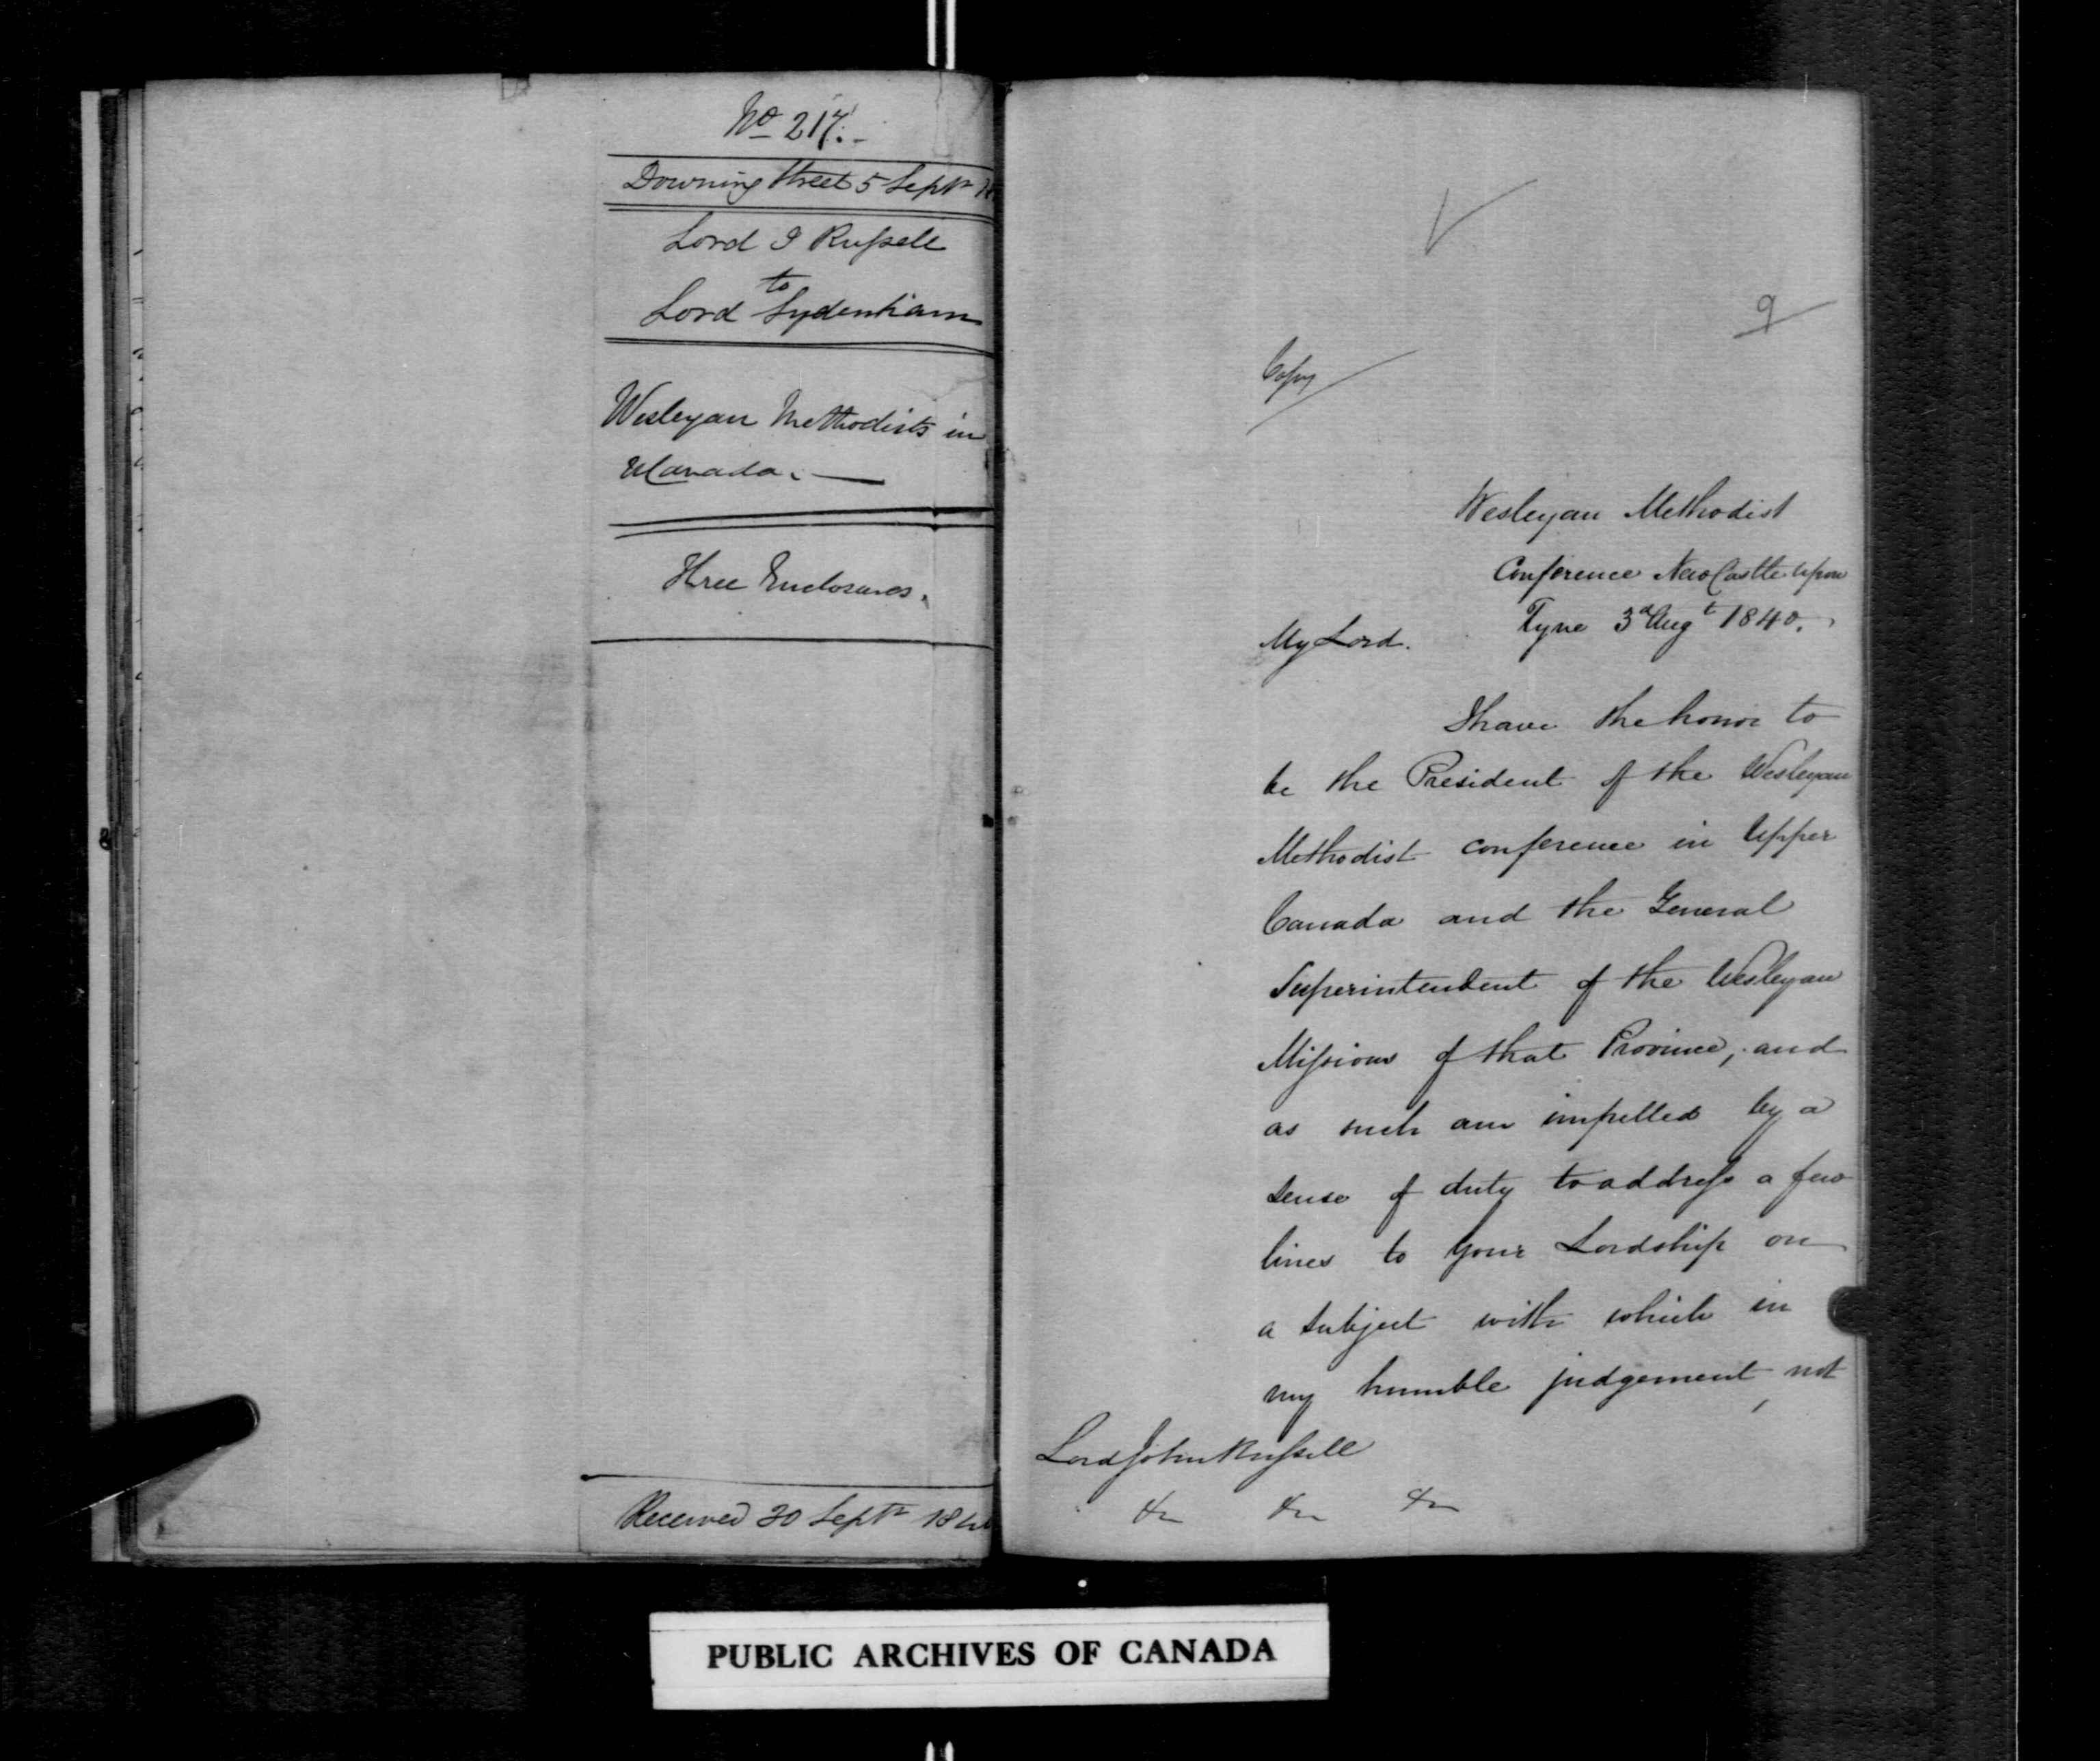 No 217.
Downing Street 5 Septr
Lord J Russell
to
Lord Sydenham
Wesleyan Methodists in
UCanada.
Three Enclosures.
Received 30 Septr 184
9
Copy
Wesleyan Methodist
Conference NewCastle upon
Tyne 3d Augt 1840.
My Lord.
I have the honor to
be the President of the Wesleyan
Methodist conference in Upper
Canada and the General
Superintendent of the Wesleyan
Missions of that Province, and
as such am impelled by a
sense of duty to address a few
lines to your Lordship on
a subject with which in
my humble judgement, not
Lord John Russell
&c &c &c
PUBLIC ARCHIVES OF CANADA